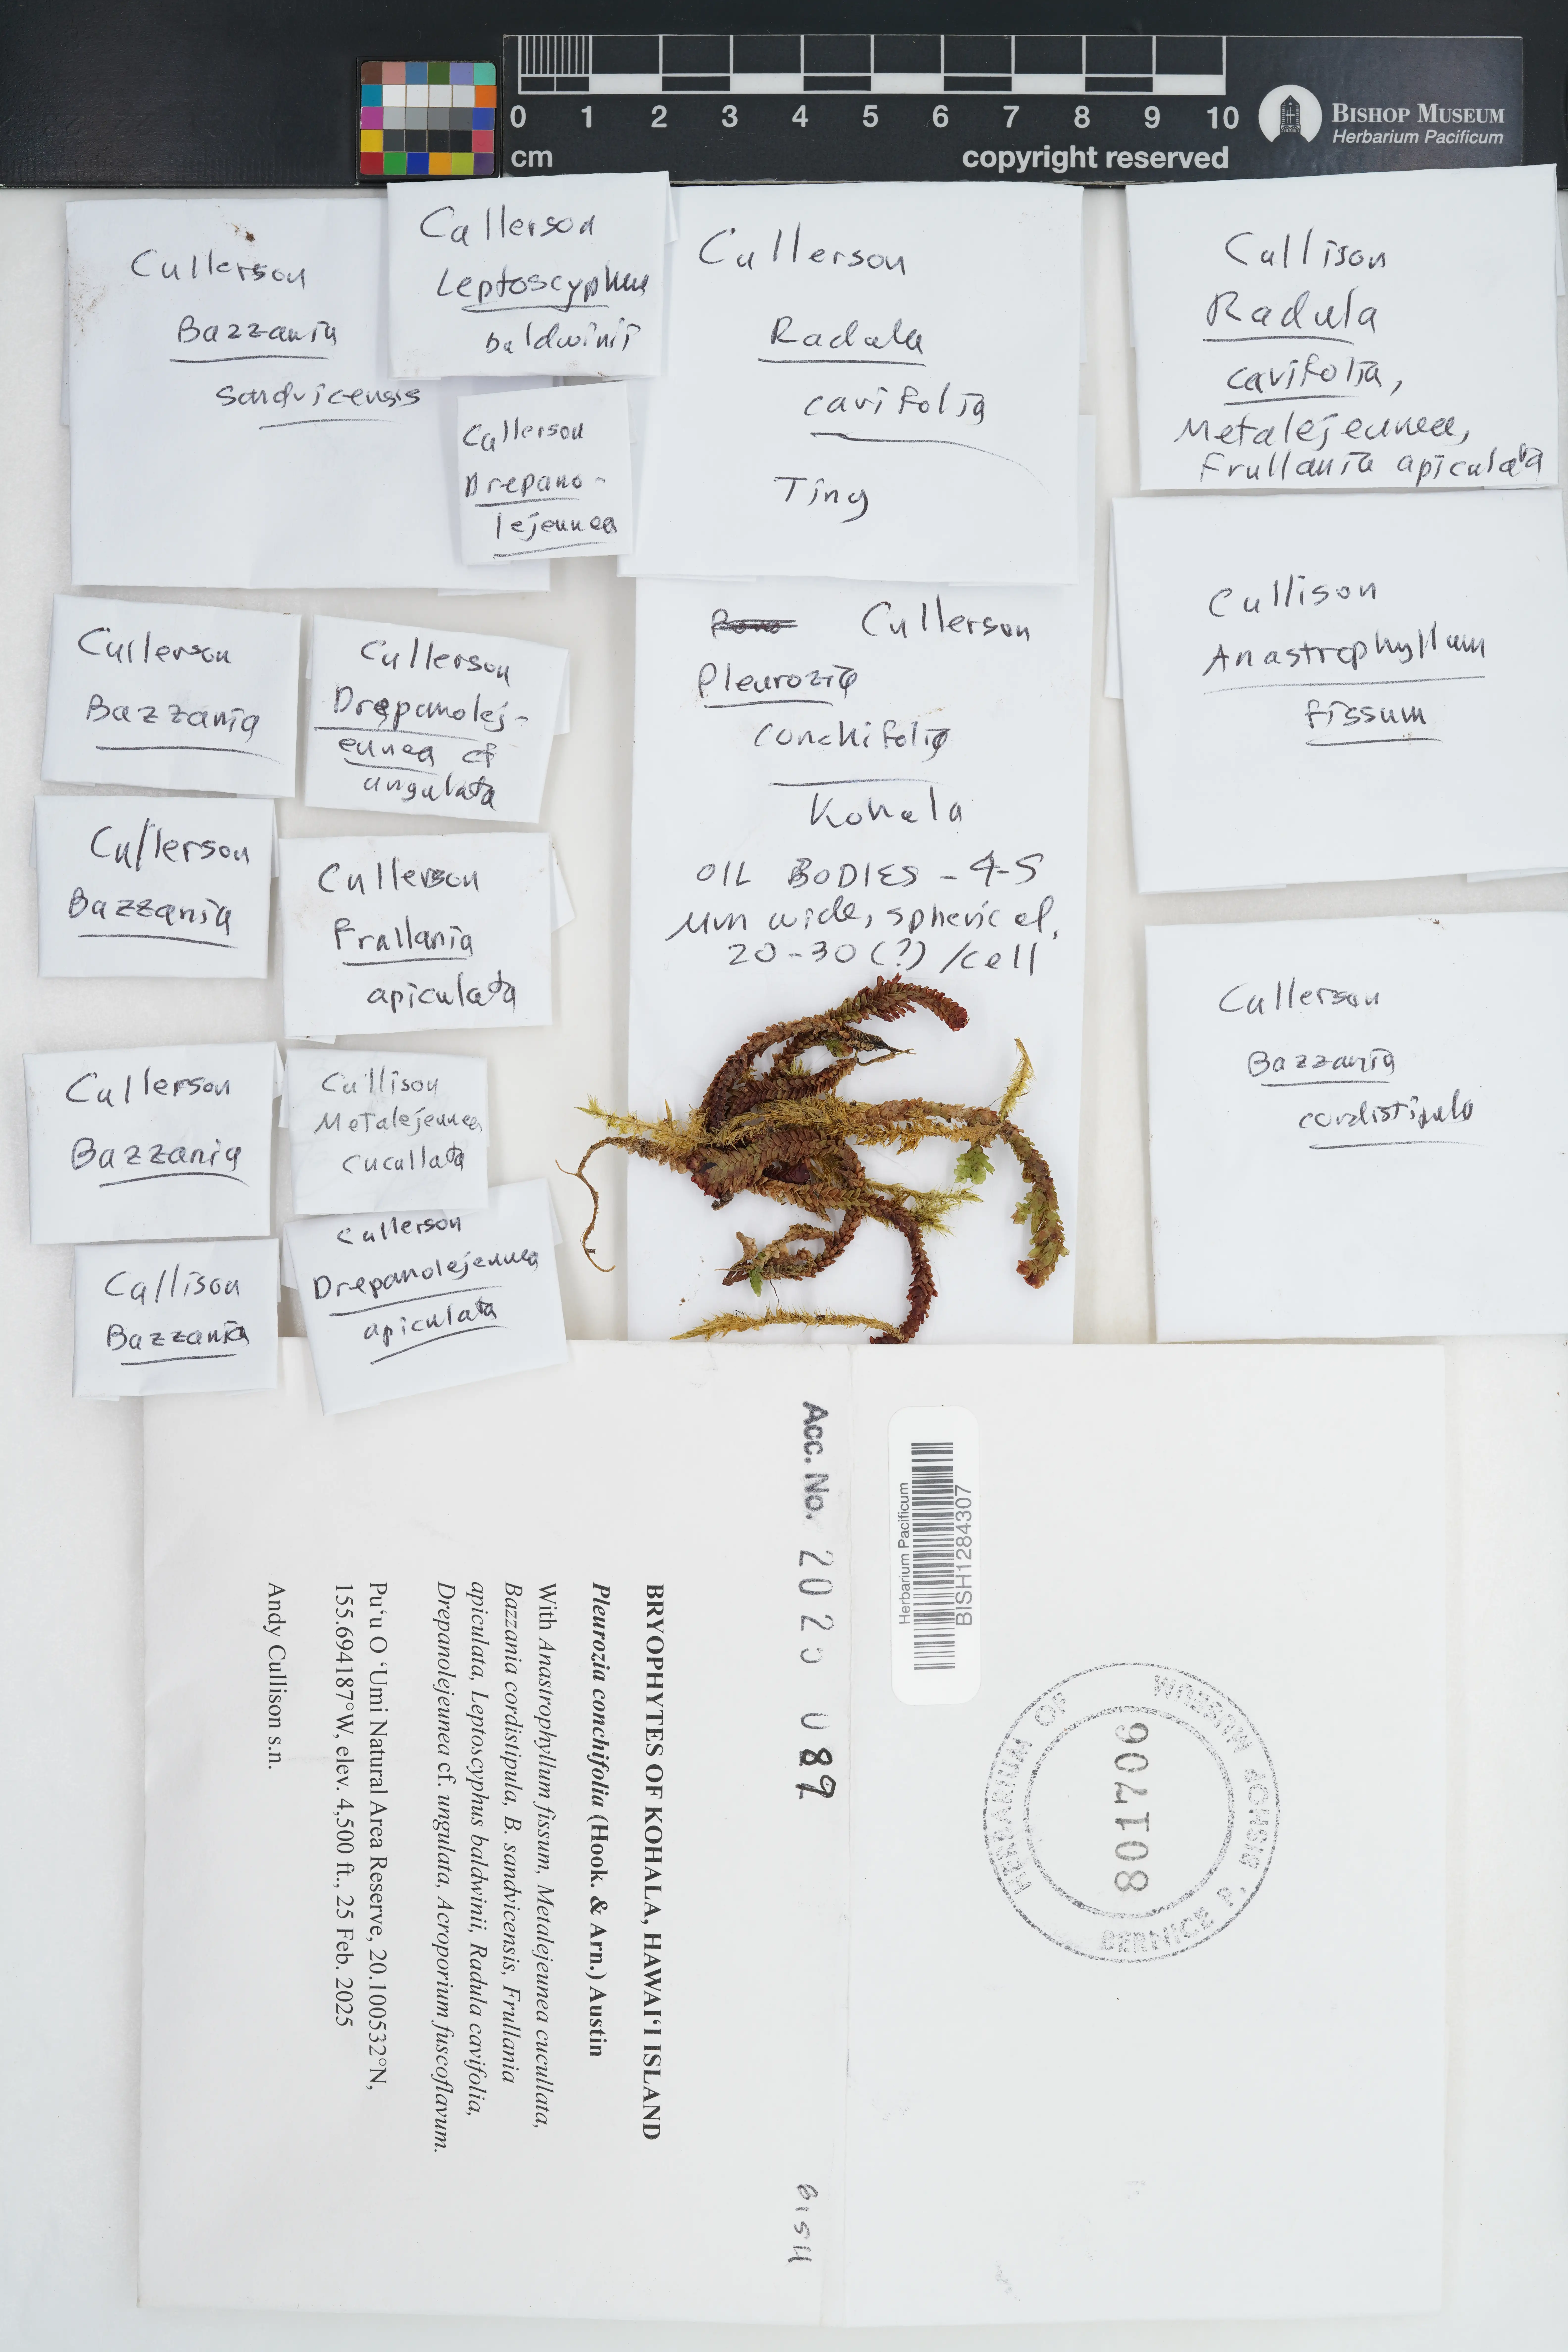 0 1 2 3 4 5 6 7 8 9 10
cm
copyright reserved
BISHOP MUSEUM
Herbarium Pacificum
Cullerson
Bazzania
sandvicensis
Cullerson
Leptoscyphus
baldwinii
Cullerson
Drepano-
lejeunea
Cullerson
Radula
cavifolia
Tiny
Cullison
Radula
cavifolia,
Metalejeunea,
Frullania apiculata
Cullison
Anastrophyllum
fissum
Cullerson
Bazzania
cordistipula
Cullerson
Pleurozia
conchifolia
Kohala
OIL BODIES - 4-5
µm wide, spherical,
20-30(?)/cell
Cullerson
Bazzania
Cullerson
Drepanolej-
eunea cf
ungulata
Cullerson
Bazzania
Cullerson
Frullania
apiculata
Cullerson
Bazzania
Cullison
Metalejeunea
cucullata
Cullison
Bazzania
Cullerson
Drepanolejeunea
apiculata
BRYOPHYTES OF KOHALA, HAWAI‘I ISLAND
Pleurozia conchifolia (Hook. & Arn.) Austin
With Anastrophyllum fissum, Metalejeunea cucullata,
Bazzania cordistipula, B. sandvicensis, Frullania
apiculata, Leptoscyphus baldwinii, Radula cavifolia,
Drepanolejeunea cf. ungulata, Acroporium fuscoflavum.
Pu‘u O ‘Umi Natural Area Reserve, 20.100532°N,
155.694187°W, elev. 4,500 ft., 25 Feb. 2025
Andy Cullison s.n.
Acc. No. 2025 089
BISH
Herbarium Pacificum
BISH1284307
HERBARIUM OF
BERNICE P. BISHOP MUSEUM
801706